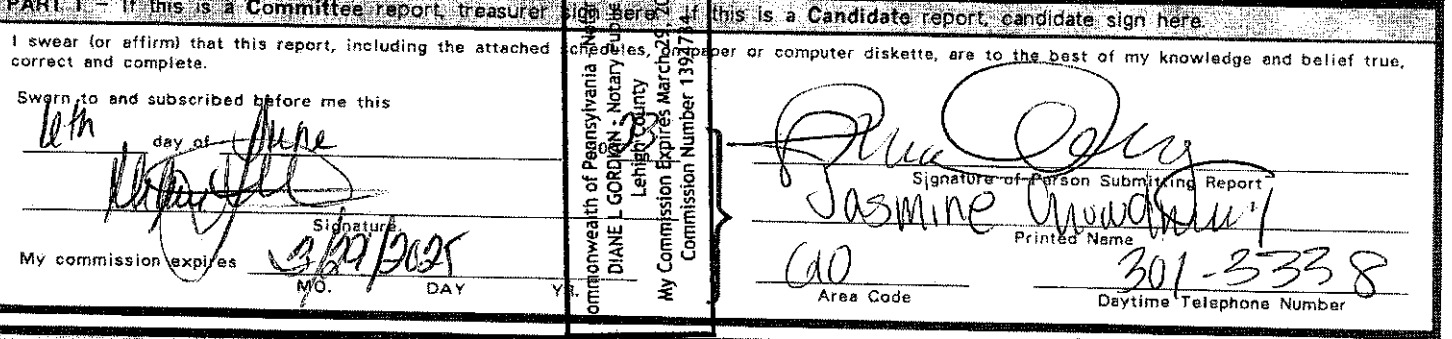 PART 1 - If this is a Committee report, treasurer sign here. If this is a Candidate report, candidate sign here.
I swear (or affirm) that this report, including the attached schedules, on paper or computer diskette, are to the best of my knowledge and belief true,
correct and complete.
Sworn to and subscribed before me this
day of June 20 23
Signature
My commission expires 3/29/2025
MO. DAY YR.
Commonwealth of Pennsylvania
DIANE L GORDIAN - Notary Public
Lehigh County
My Commission Expires March 29, 20
Commission Number 1394784
Signature of Person Submitting Report
Jasmine Chowdhury
Printed Name
301-3338
Area Code Daytime Telephone Number